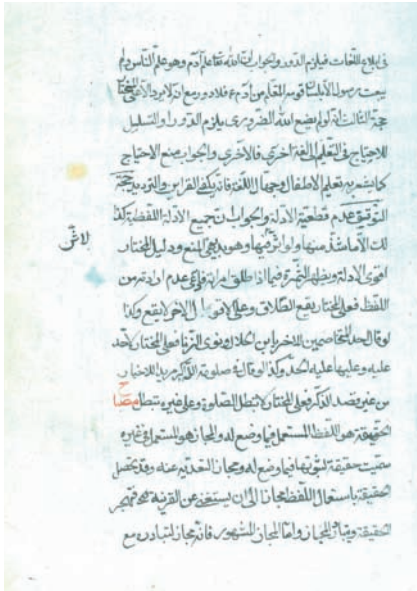 في ابلاغ اللغات فيلزم الدور والجواب ان الله تعالى علم آدم وهو علم الناس ولم
يبعث رسولا الا بلسان قومه المعلم من آدم ع فلا دور مع انه لا يرد الا على المختار
حجة الثالث انه لو لم يضع الله الضروري يلزم الدور او التسلسل
للاحتياج في التعليم الى لغة اخرى فالاخرى والجواب منع الاحتياج
كما يشعر به تعليم الاطفال وجهال اللغة فانه يكفي القراين والترديد حجة
التوقيف عدم قطعية الادلة والجواب ان جميع الادلة اللفظية كذا
لك الا ما شذ منها ولو اثر فيها وهو بديهي المنع ودليل المختار
لاغير
اقوى الادلة ويظهر الثمرة فيما اذا طلق امراته فادعى عدم ارادته من
اللفظ فعلى المختار يقع الطلاق وعلى الاقوال الاخر لا يقع وكذا
لو قال احد المتخاصمين للاخر يا ابن الحلال ونوى الزنا فعلى المختار لا حد
عليه وعليها عليه الحد وكذا لو قال في صلوته الله اكبر مريدا للاخبار
من غير قصد الذكر فعلى المختار لا تبطل الصلوة وعلى غيره تبطل
الحقيقة هو اللفظ المستعمل فيما وضع له والمجاز هو المستعمل في غيره
سميت حقيقة لثبوتها فيما وضع له ومجازا لتعديه عنه وقد يحصل
الحقيقة باستعمال اللفظ مجازا الى ان يستغنى عن القرينة فتهجر
الحقيقة ويتبادر المجاز واما المجاز المشهور فانه مجاز لتبادره مع